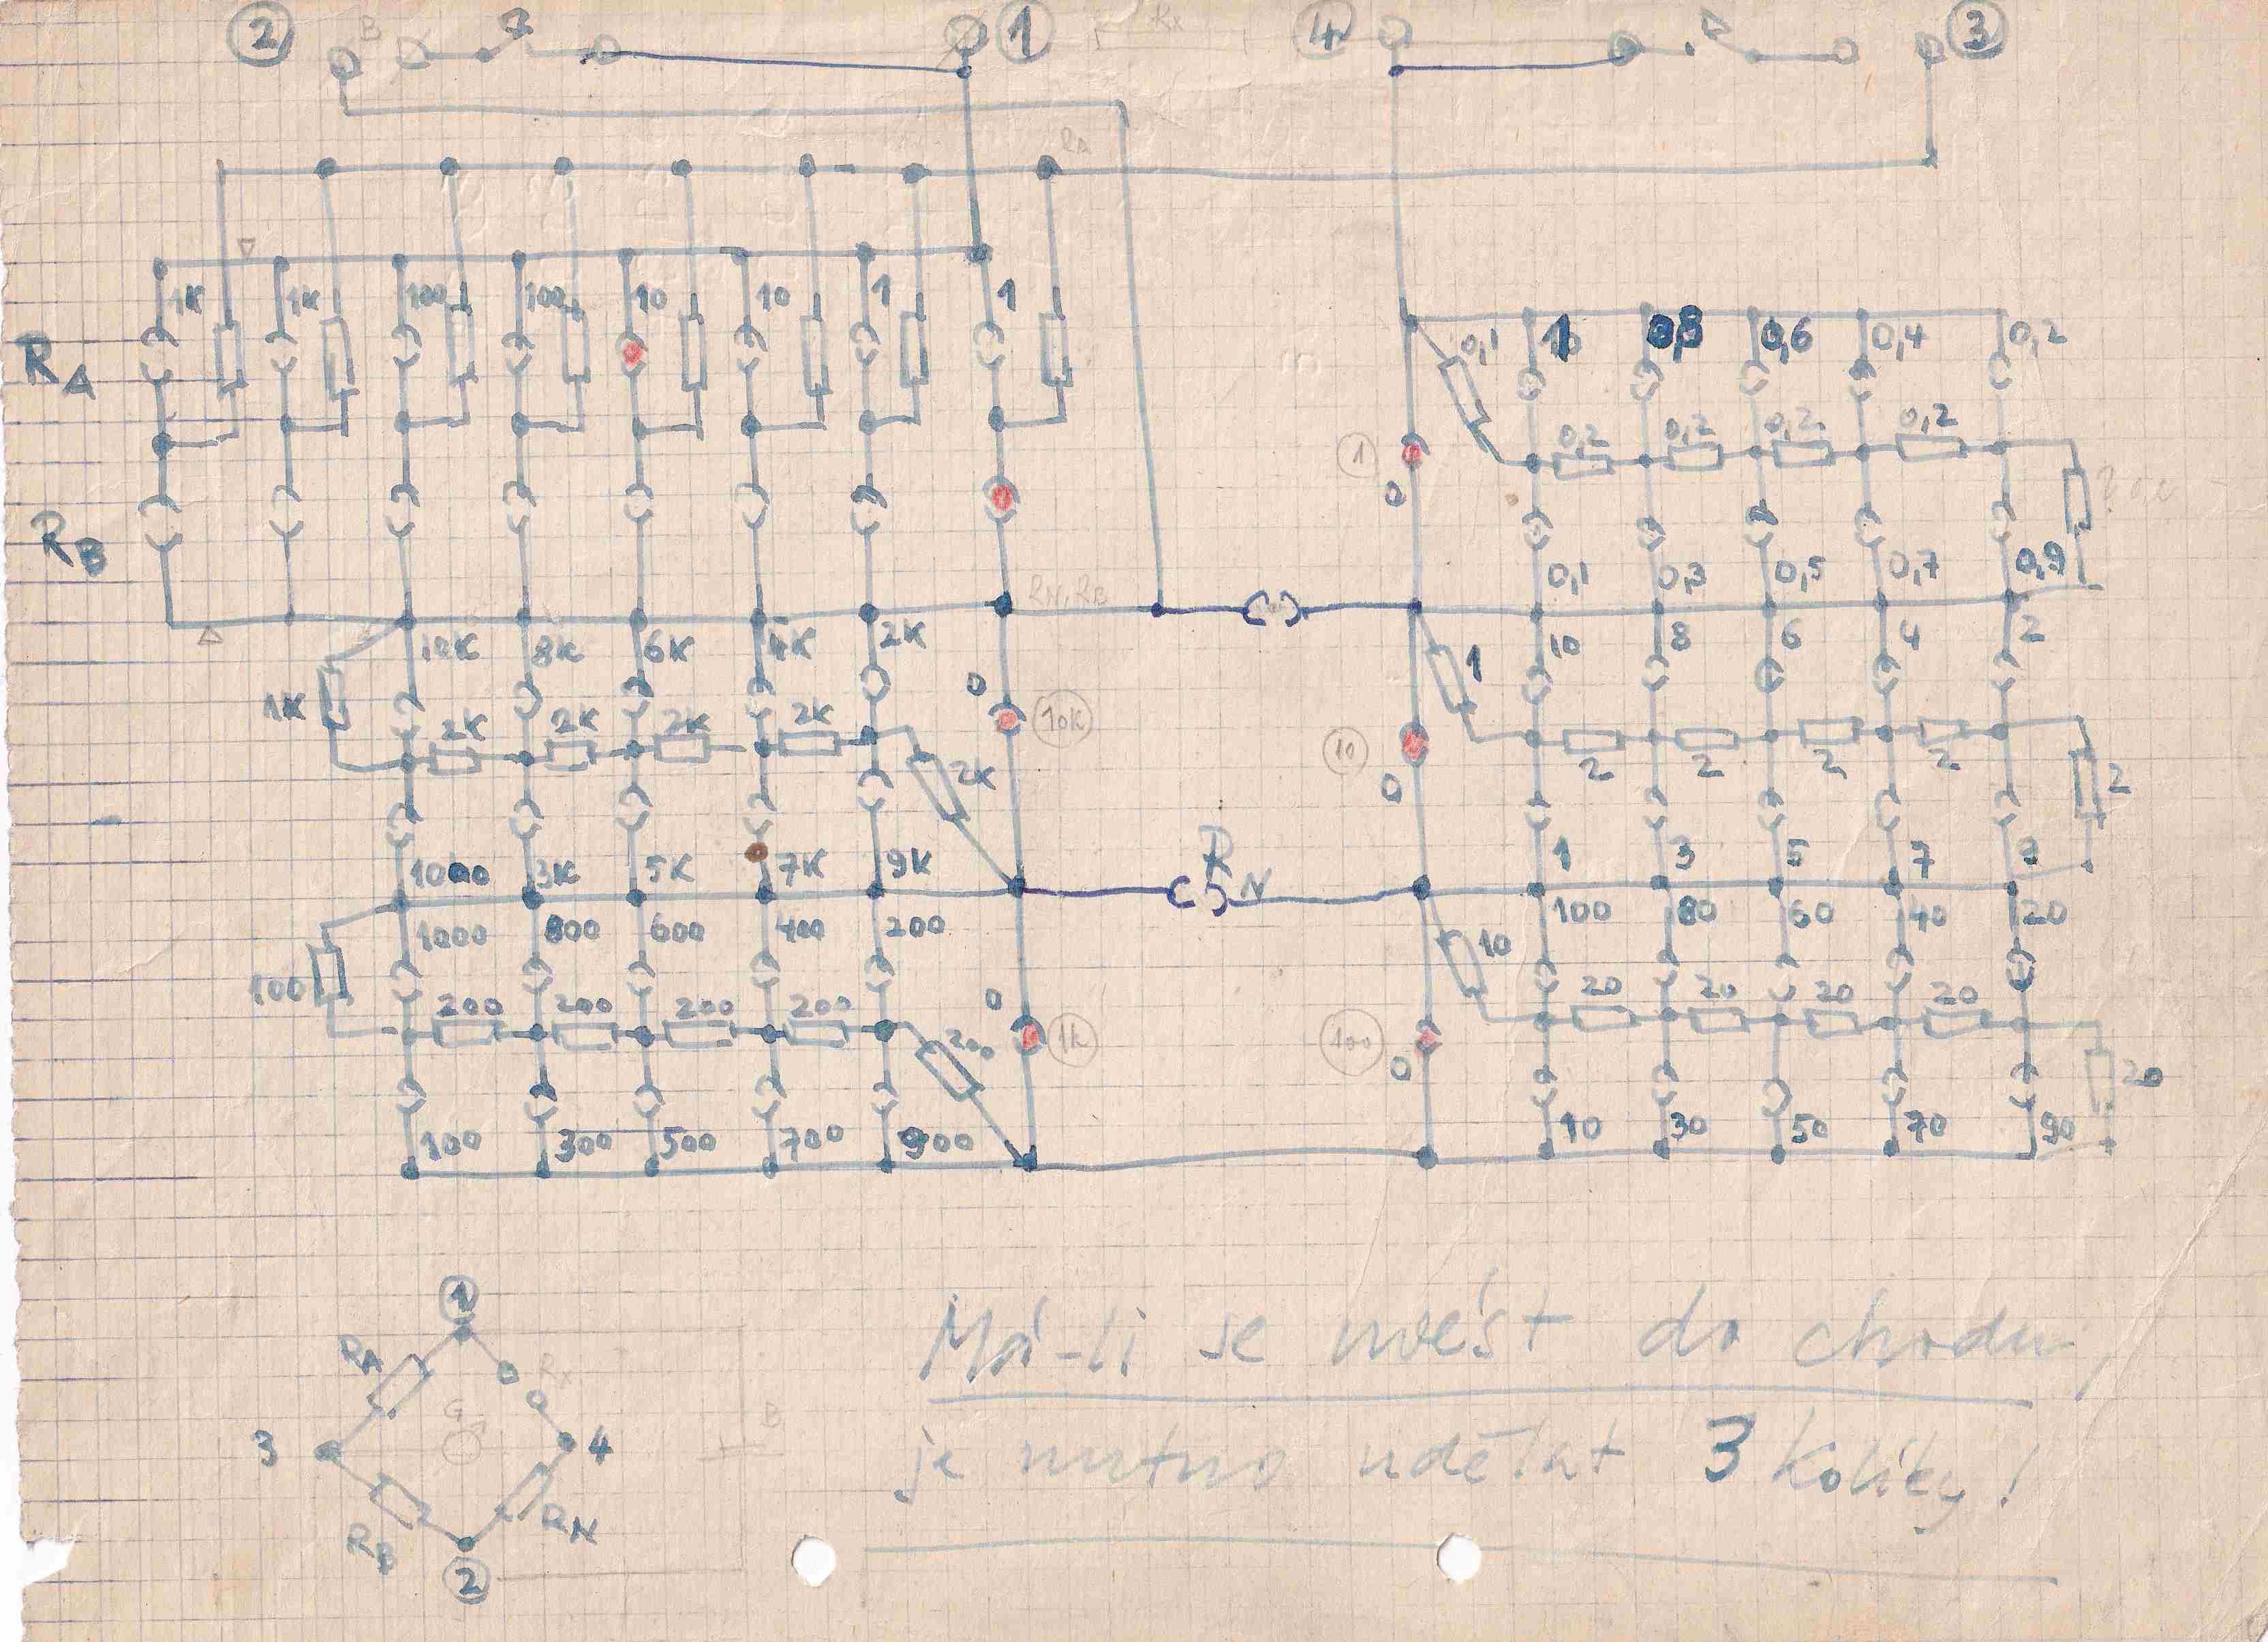 2 B 1 Rx 4 3
RA
1K 1K 100 100 10 10 1 1
0,1 0,8 0,6 0,4 0,2
RA
1
0,2 0,2 0,2 0,2
0
RB
0,1 0,3 0,5 0,7 0,9
RN, RB
10K 8K 6K 4K 2K
10 8 6 4 2
1K 0 10K
1
2K 2K 2K 2K 2K
10
2 2 2 2 2
0
1000 3K 5K 7K 9K
RN
1 3 5 7 9
1000 800 600 400 200
100 80 60 40 20
100 0 10
200 200 200 200 200 1k
100
20 20 20 20 20
0
100 300 500 700 900
10 30 50 70 90
1
RA Rx
G B
3 4
RB RN
2
Má-li se uvést do chodu,
je nutno udělat 3 kolíky!